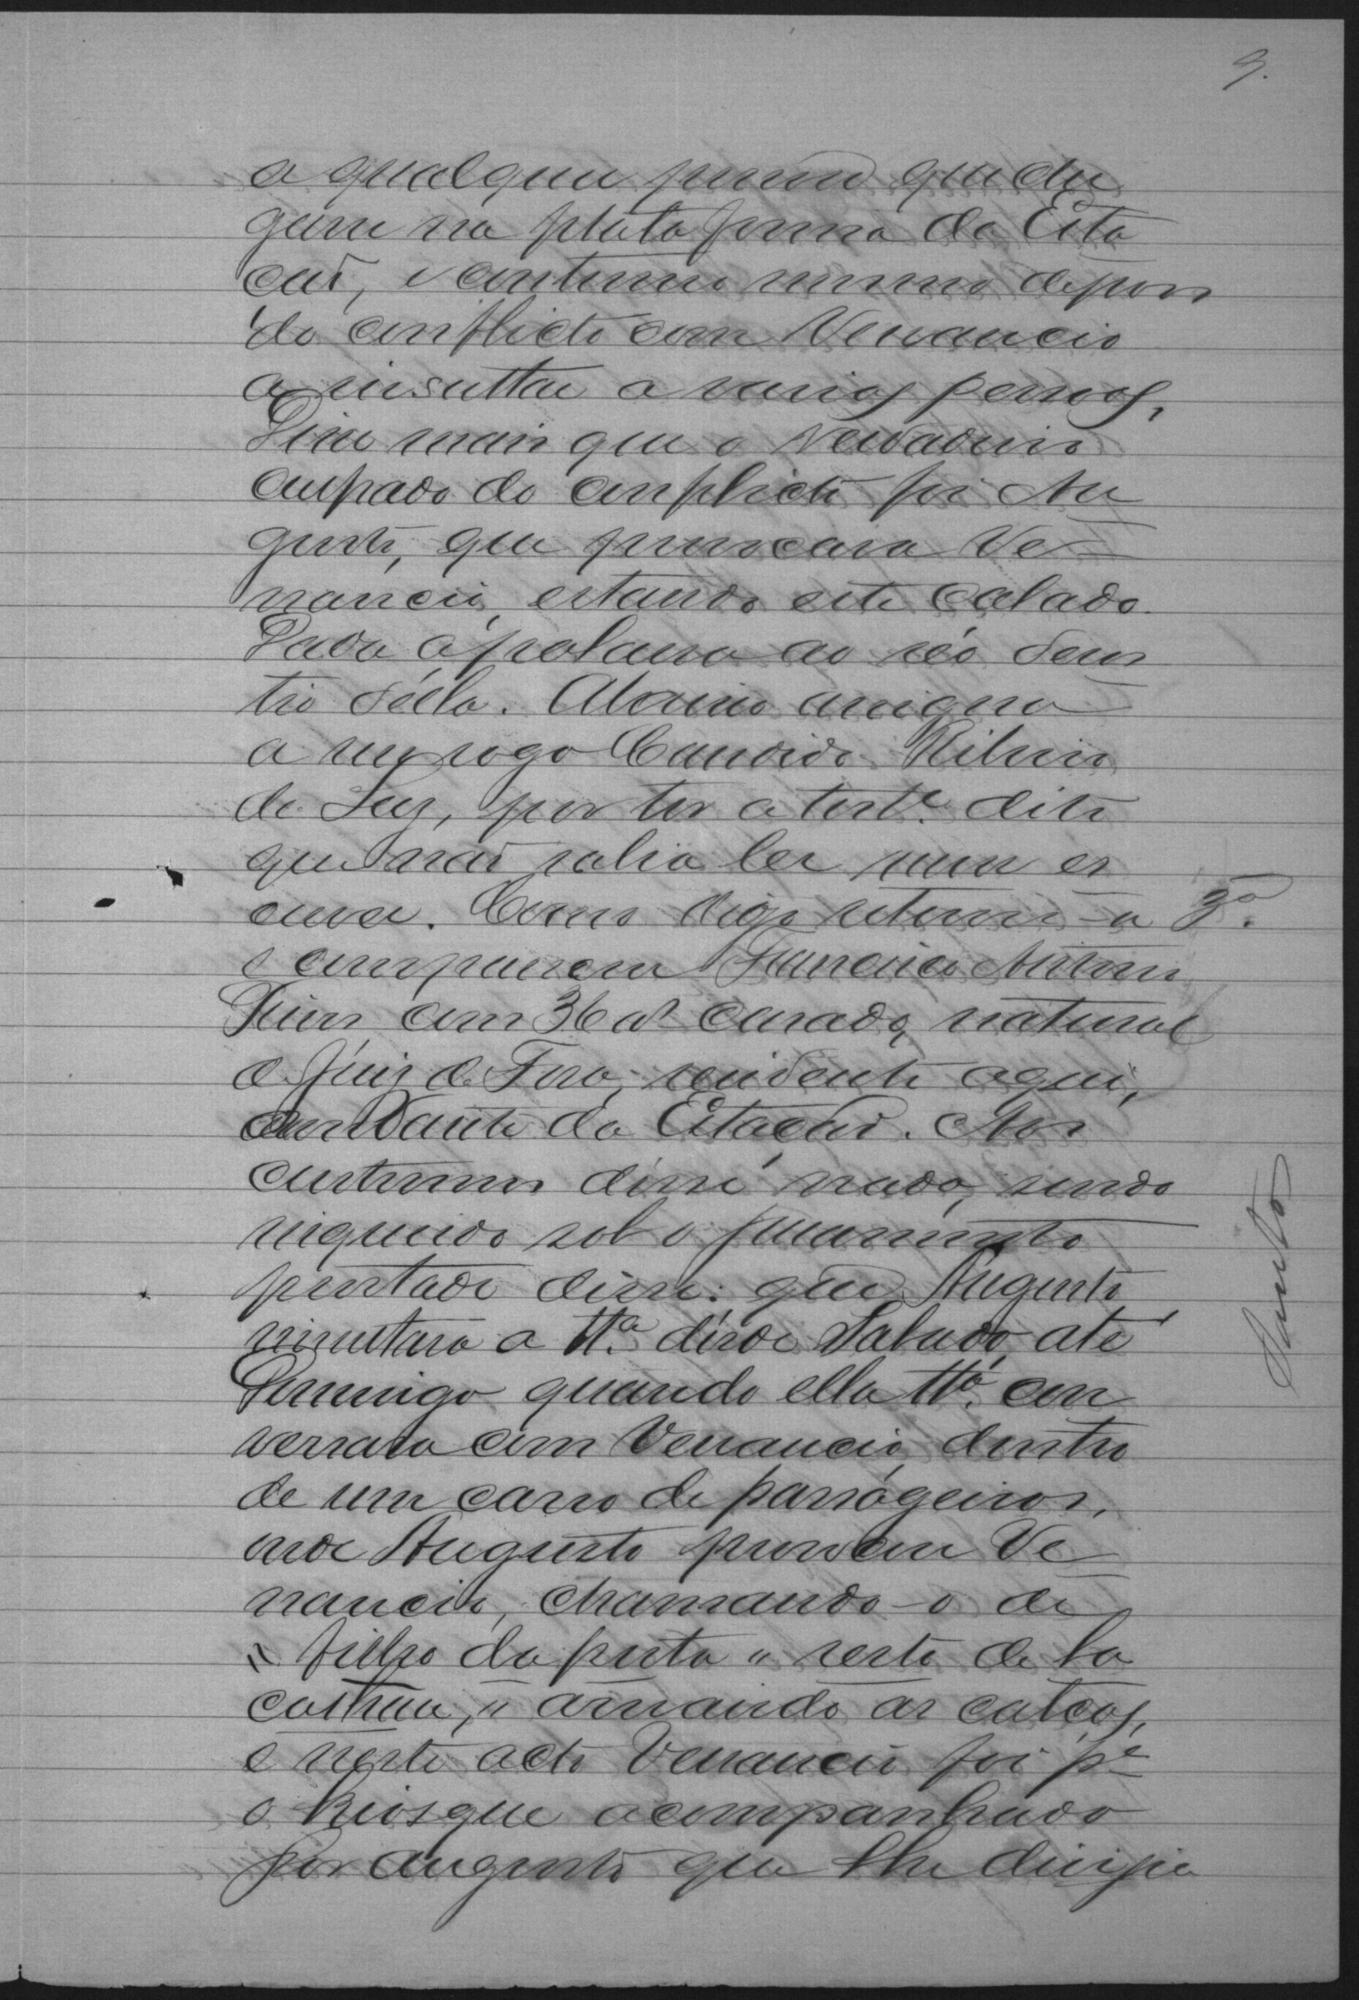 9.
a qualquer pessoa que che
gasse na plata forma da Esta
caõ, e continuou mesmo depois
do conflicto com Venancio
a insultar a varias pessoas,
Disse mais que o verdadeiro
culpado do conflicto foi Au
gusto, que provocara Ve-
nancio, estando este calado.
Dada a palavra ao réo
a seu rogo Candido Ribeiro
de Luz, por ter a testª dito
que naõ sabia ler nem es
crever. Como digo 3ª.
e compareceu Francisco Antonio
com 36 aˢ casado, natural
de Juiz de Fora, residente aqui,
da Estaçaõ. Aos
costumes disse nada, sendo
inquerido sob o juramento
prestado disse: que Augusto
insultara a ttª. desde Sabado até
Domingo quando ella ttª. con
versava com Venancio, dentro
de um carro de passageiros,
onde Augusto provocou Ve-
nancio, chamando-o de
" filho da puta " resto de ba
" arriando as calças,
e neste acto Venancio foi pª
o kiosque acompanhado
por Augusto que lhe dirigia
Santos